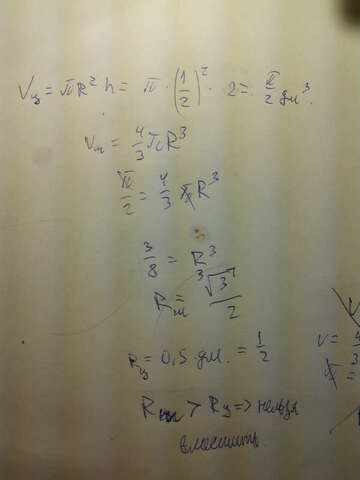 Vц = πR² h = π · (1/2)² · 2 = π/2 дм³.
Vш = 4/3 πR³
π/2 = 4/3 πR³
3/8 = R³
Rш = ∛3/2
Rц = 0,5 дм. = 1/2
Rш > Rц => нельзя
вместить.
V =